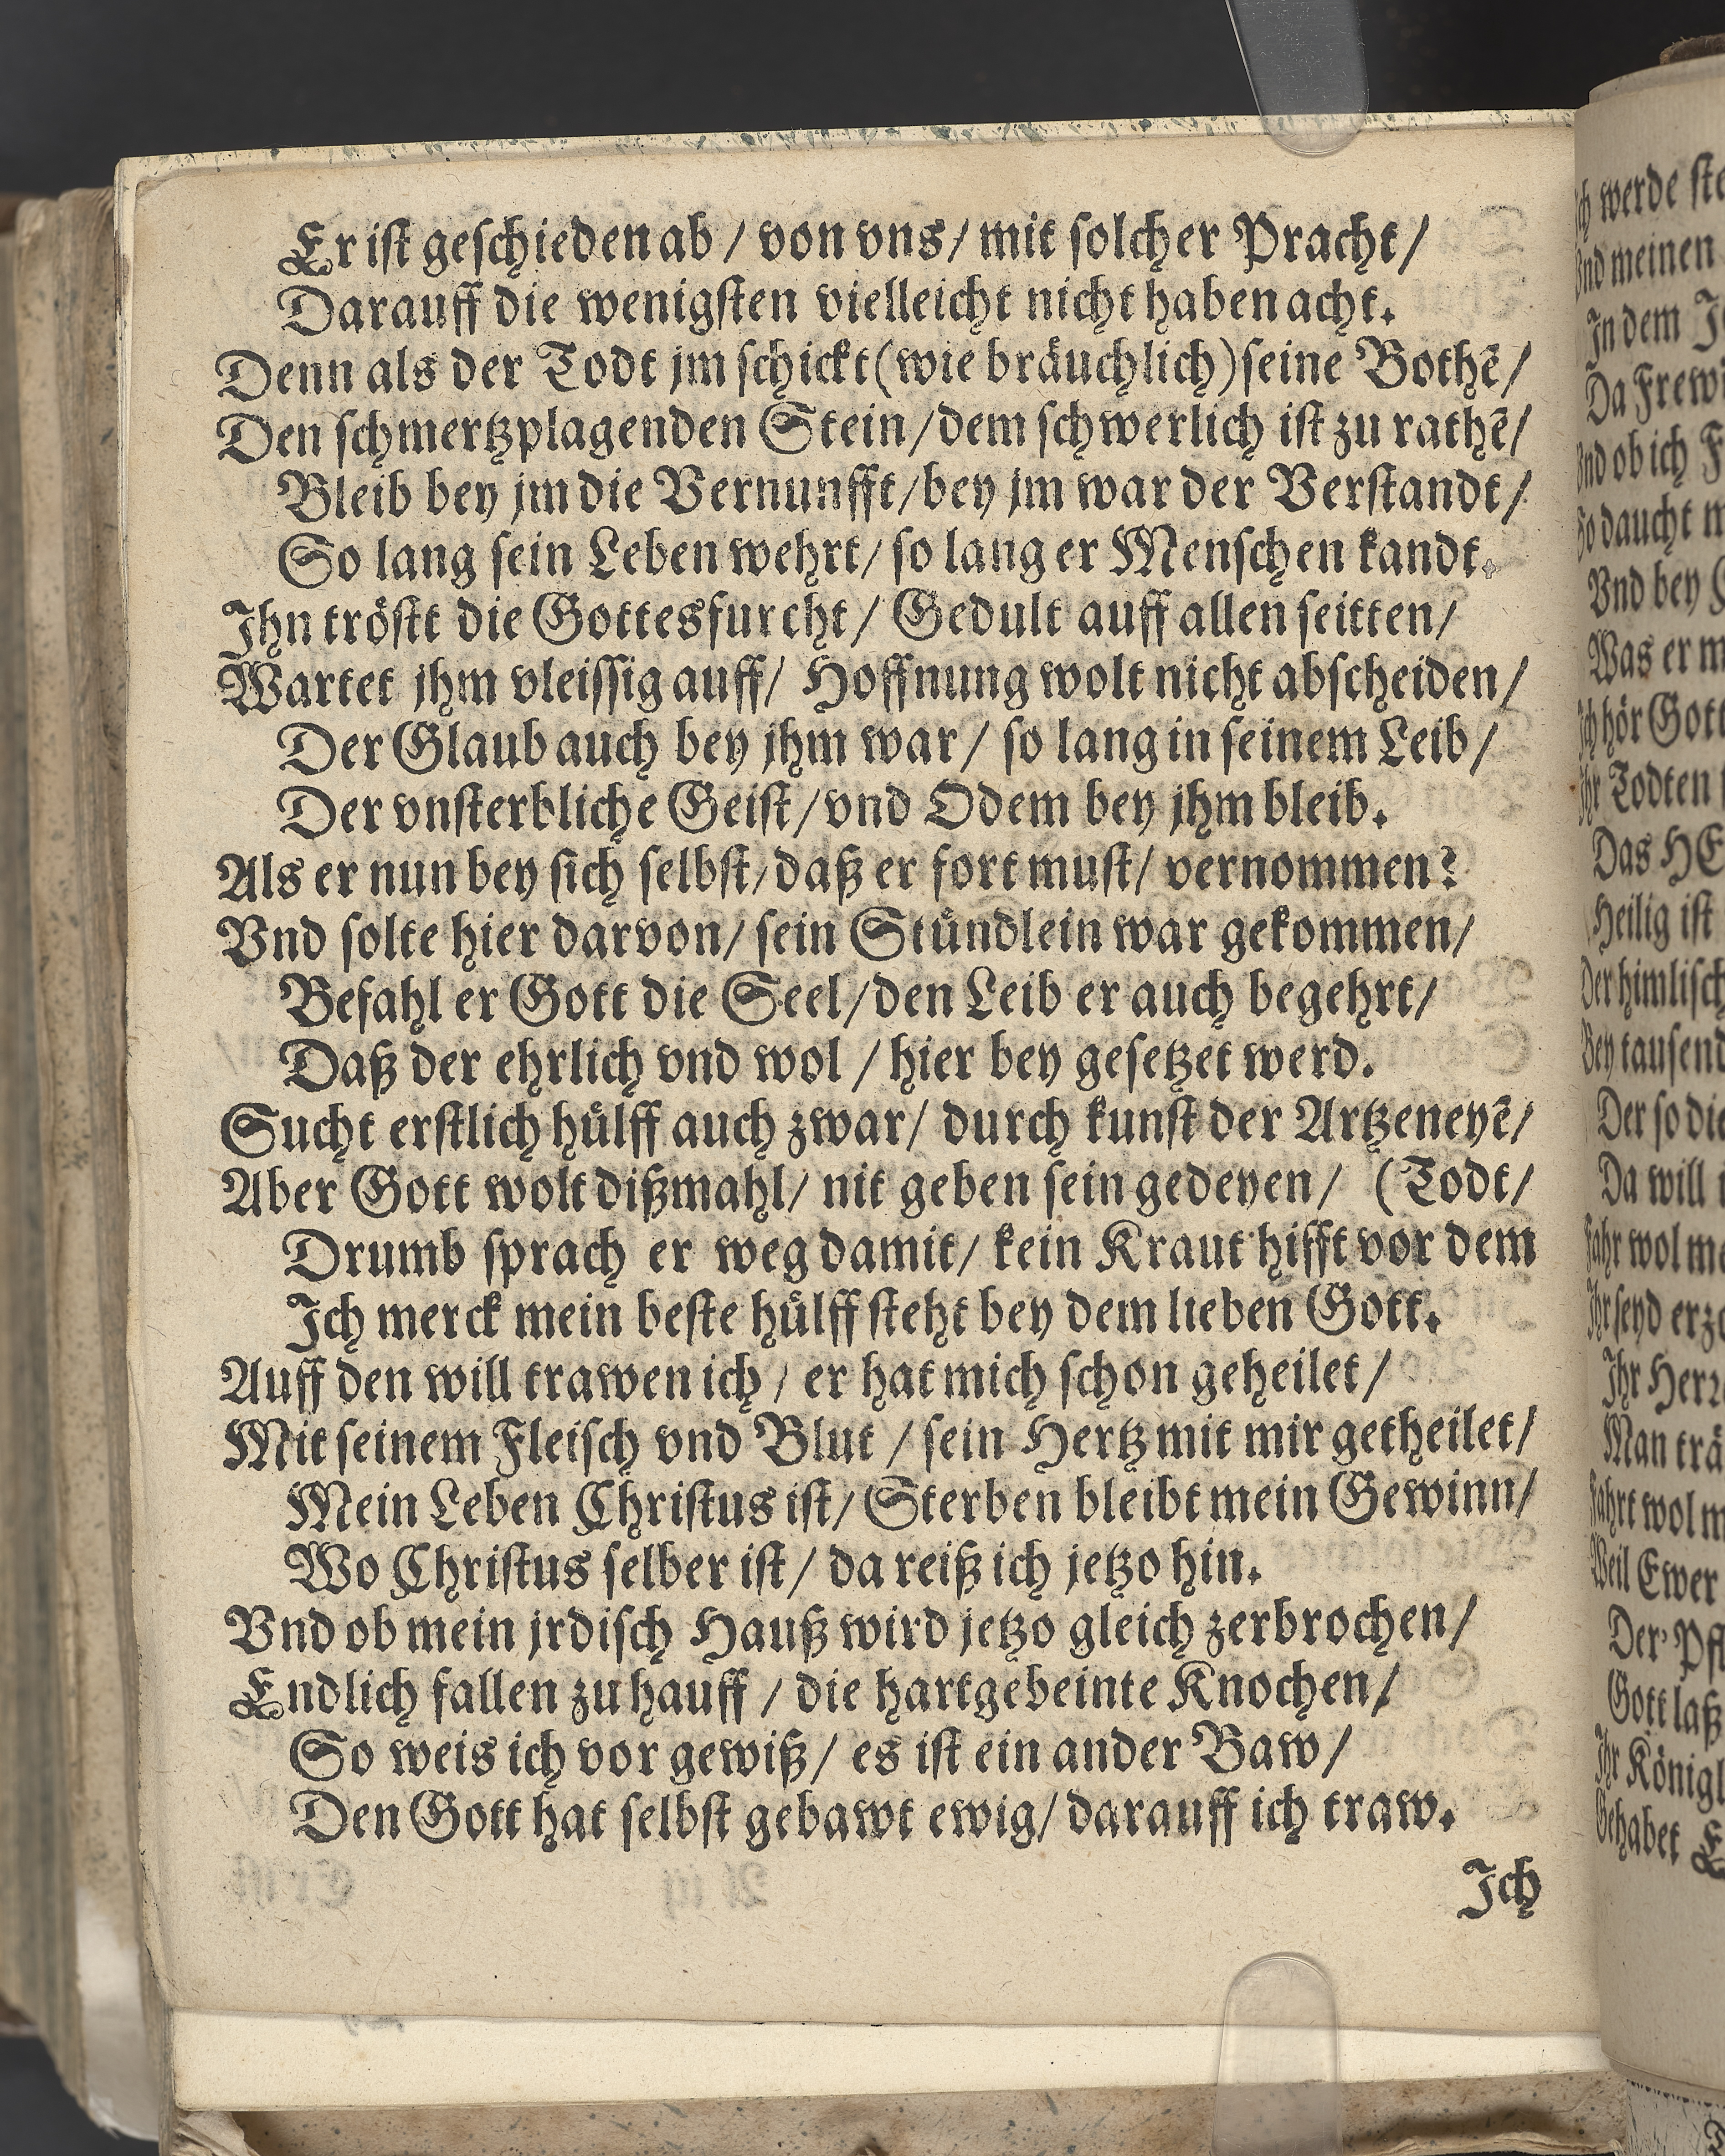 Er ist geschieden ab / von vns / mit solcher Pracht /
Darauff die wenigsten vielleicht nicht haben acht.
Denn als der Todt jm schickt (wie bräuchlich) seine Bothẽ /
Den schmertzplagenden Stein / dem schwerlich ist zu rathẽ /
Bleib bey jm die Vernunfft / bey jm war der Verstandt /
So lang sein Leben wehrt / so lang er Menschen kandt.
Ihn tröstt die Gottesfurcht / Gedult auff allen seitten /
Wartet jhm vleissig auff / Hoffnung wolt nicht abscheiden /
Der Glaub auch bey jhm war / so lang in seinem Leib /
Der vnsterbliche Geist / vnd Odem bey jhm bleib.
Als er nun bey sich selbst / daß er fort must / vernommen?
Vnd solte hier darvon / sein Stündlein war gekommen /
Befahl er Gott die Seel / den Leib er auch begehrt /
Daß der ehrlich vnd wol / hier bey gesetzet werd.
Sucht erstlich hülff auch zwar / durch kunst der Artzeneyẽ /
Aber Gott wolt dißmahl / nit geben sein gedeyen / (Todt /
Drumb sprach er weg damit / kein Kraut hifft vor dem
Ich merck mein beste hülff steht bey dem lieben Gott.
Auff den will trawen ich / er hat mich schon geheilet /
Mit seinem Fleisch vnd Blut / sein Hertz mit mir getheilet /
Mein Leben Christus ist / Sterben bleibt mein Gewinn /
Wo Christus selber ist / da reiß ich jetzo hin.
Vnd ob mein jrdisch Hauß wird jetzo gleich zerbrochen /
Endlich fallen zu hauff / die hartgebeinte Knochen /
So weis ich vor gewiß / es ist ein ander Baw /
Den Gott hat selbst gebawt ewig / darauff ich traw.
Ich
werde
Vnd meinen
In dem
Da
Vnd ob ich
So daucht
Vnd bey
Was er
Ich hör Gott
Ihr Todten
Das
Heilig ist
Der
Bey
Der so die
Da will
wol
Ihr seyd
Ihr
Man
Fahrt wol
Weil Ewer
Der
Gott laß
Ihr
Gehabet